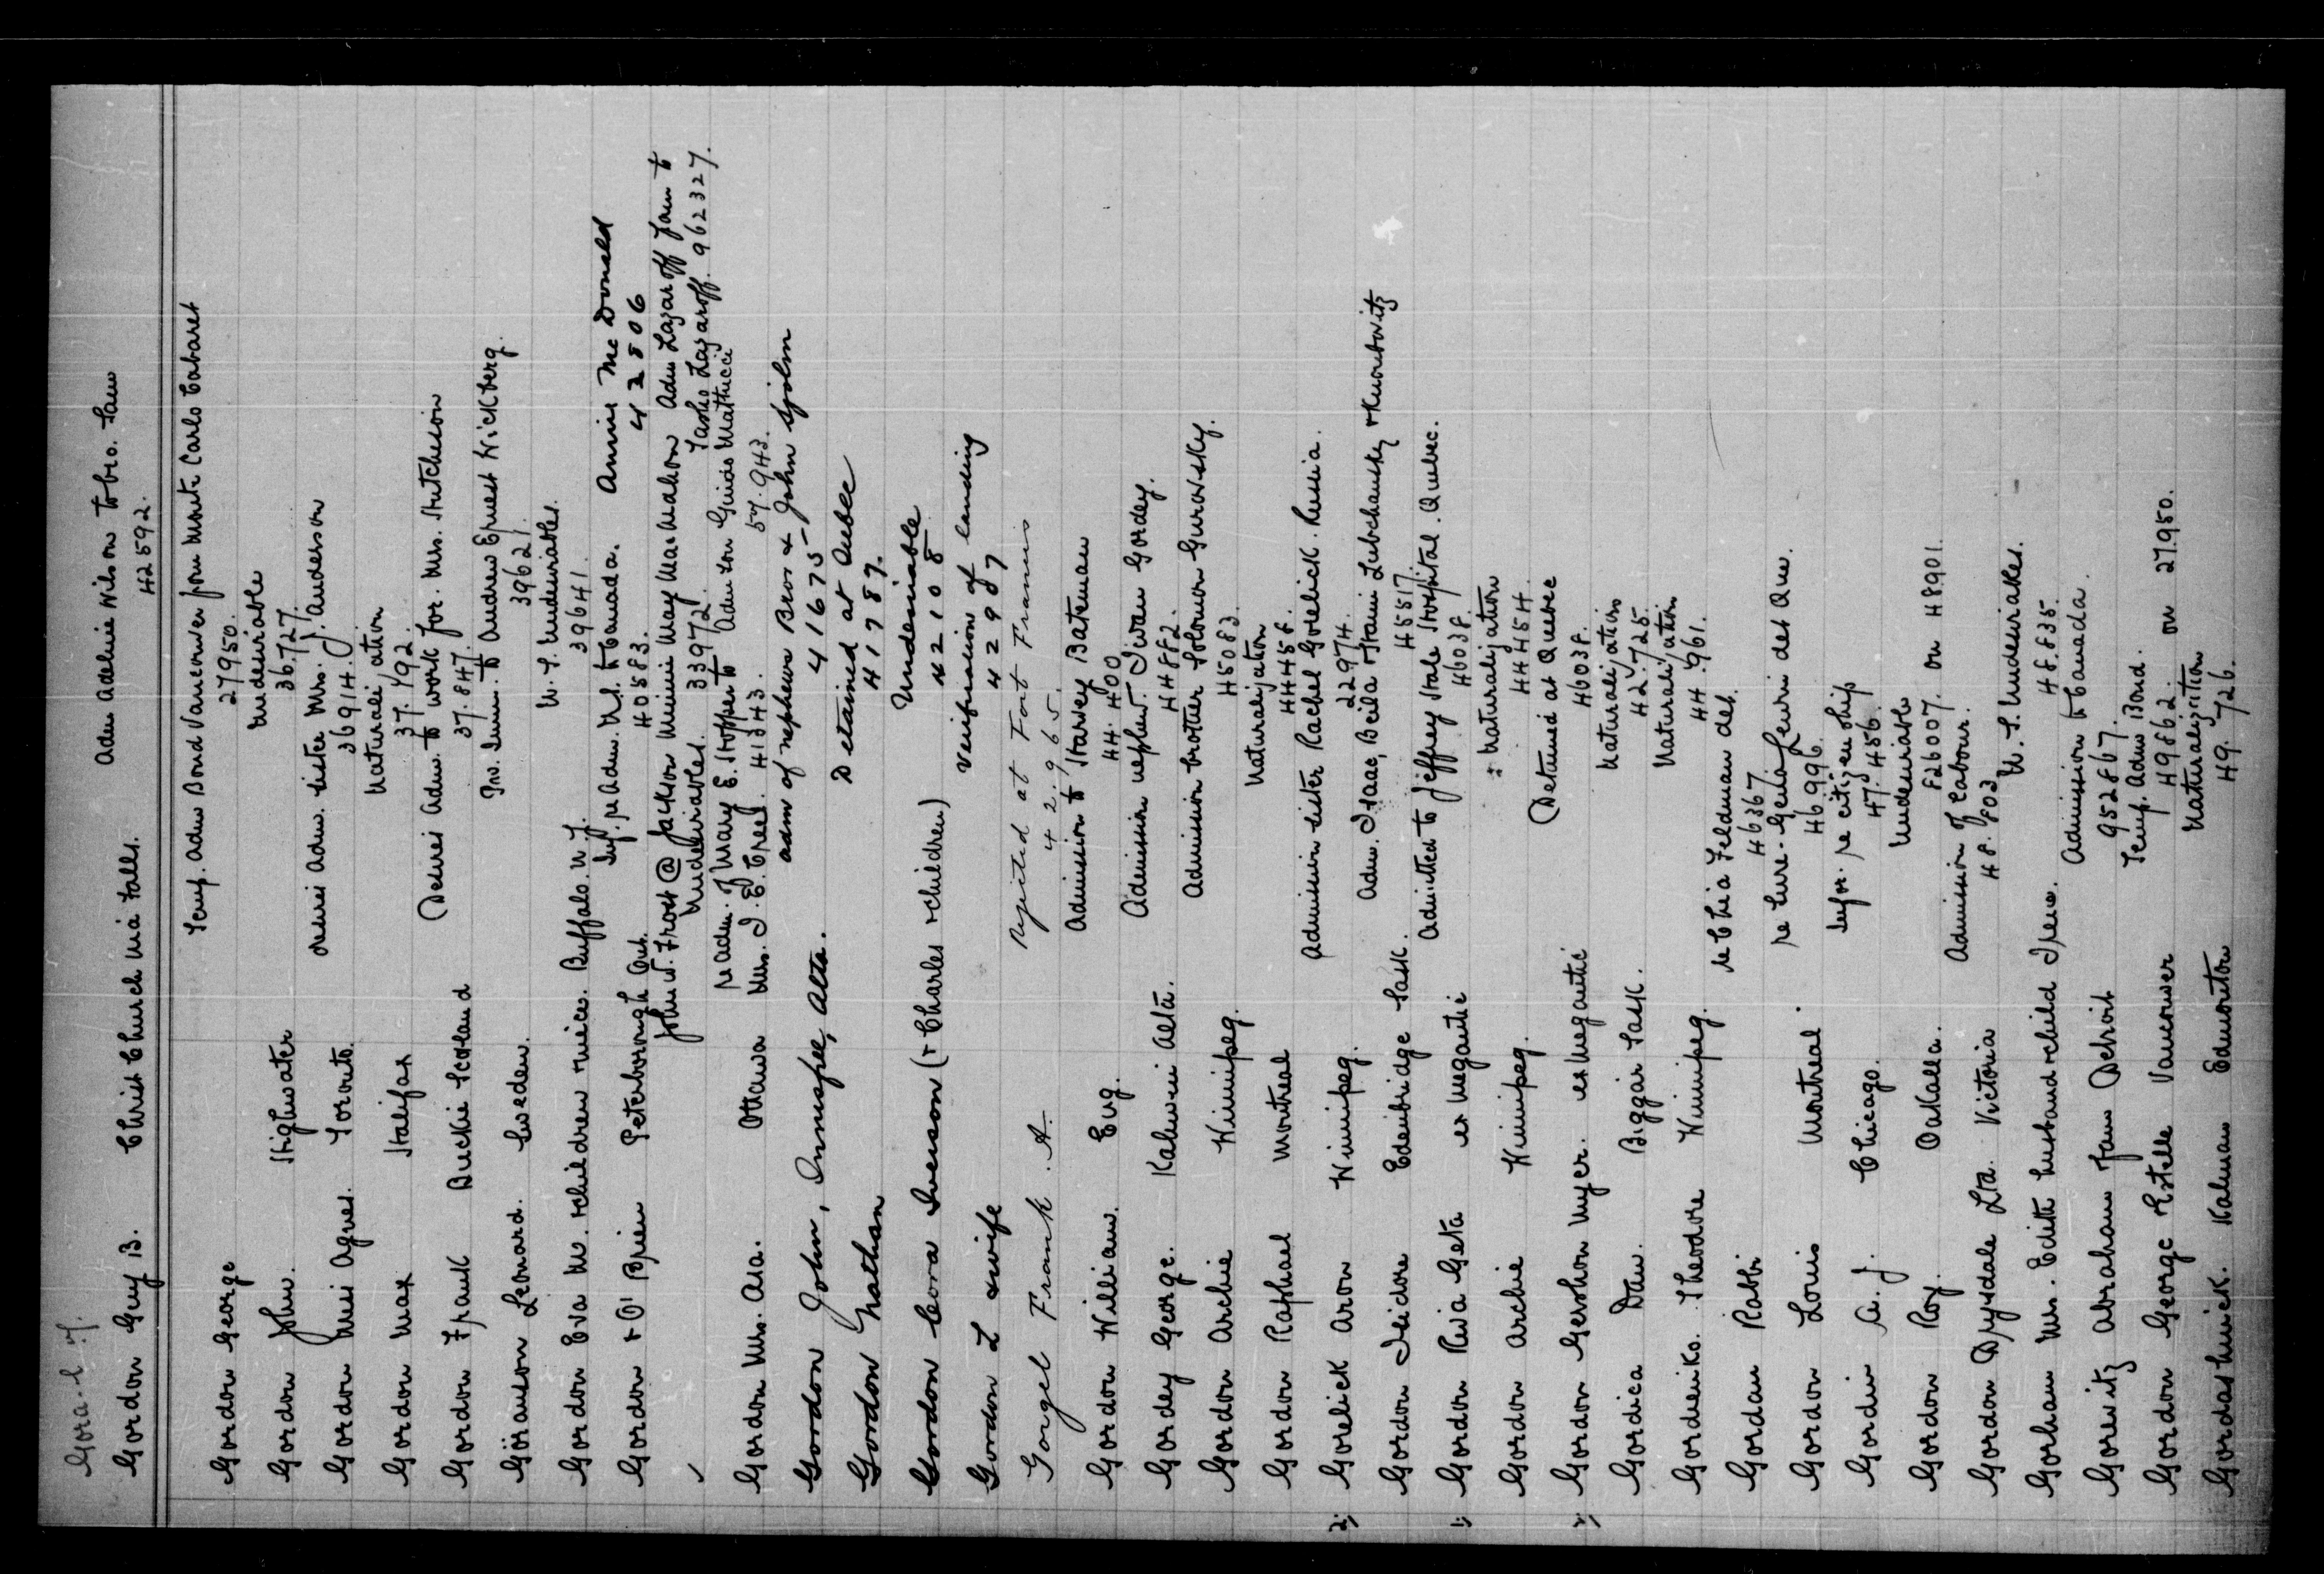 Gordon Guy B. Christ Church Nia Falls. Adm Adelnie Wilson to bro. Sam
42592.
Gordon George Temp. Adm Bond Vancouver from Monte Carlo Cabaret
27950.
Gordon John. Highwater Undesirable
36.727.
Gordon Miss Agnes. Toronto. desires adm. sister Mrs. J. Anderson
36914.
Gordon Max Halifax Naturalization
37.792
Gordon Frank Buckie Scotland Desires Adm. to work for Mrs. Hutcheson
37.847.
Göranson Leonard. Sweden. Prv. Imm. to Andrew Ernest Wickberg.
39621.
Gordon Eva M. & children & niece. Buffalo. N.Y. U.S. Undesirables.
39641.
Gordon & O'Brien Peterborough Ont. Inf. re Adm. U.S. to Canada. Annie McDonald
40583. 42806
John W. Frost @ Jackson Minnie May MacMahon Adm Lazaroff fam to
Undesirables. 33972. Tasho Lazaroff. 962327.
re adm. of Mary E. Hopper to Adm son Guido Mathucci
Gordon Mrs. Asa. Ottawa Mrs. I. E. Creel. 41343. 57.943.
Gordon John, Innisfree, Alta. adm of nephews Bros & John Sjolin
41675
Gordon Nathan Detained at Quebec
41787.
Gordon Cora Iverson (& Charles & children) Undesirable
42108
Gordon L & wife Verification of landing
42987
Gorgel Frank. A. Rejected at Fort Francis
42.965.
Gordon William. Eng. Admission to Harvey Bateman
44.400
Gordey George. Kalwin Alta. Admission nephew. Iwan Gordey.
44882.
Gordon Archie Winnipeg. Admission brother Solomon Gurovsky.
45083.
Gordon Raphael Montreal Naturalization
44458.
2; Gorelick Aron Winnipeg. Admission sister Rachel Gorelick. Russia.
22974.
Gordon Isidore Edenbridge Sask. Adm. Isaac, Beila & Fanni Lubchansky & Kurontovitz
45517.
1; Gordon Riva Geta ex Megantic Admitted to Jeffrey Hale Hospital. Quebec.
46038.
Gordon Archie Winnipeg. Naturalization
44454.
2; Gordon Gershon Myer. ex Megantic Detained at Quebec
46038.
Gordica Dan. Biggar Sask. Naturalization
42.725.
Gordienko. Theodore Winnipeg. Naturalization
44.961.
Gordan Rabbi re Chia Feldman det.
46367
Gordon Louis Montreal. re Sure-Genia Leurri det Que.
46996.
Gordin A. J. Chicago. Infor. re citizenship
47.456.
Gordon Roy. Oakalla. Undesirable
826007. on 48901.
Gordon Drysdale Ltd. Victoria Admission of Labour.
48.803
Gorham Mrs. Edith husband & child Irene. U.S. Undesirables.
48.835.
Gorevitz Abraham fam Detroit Admission to Canada.
952867.
Gordon George & Estelle Vancouver Temp. Adm Bond.
49862. on 27950.
Gordashnick. Kalman Edmonton Naturalization
49.726.